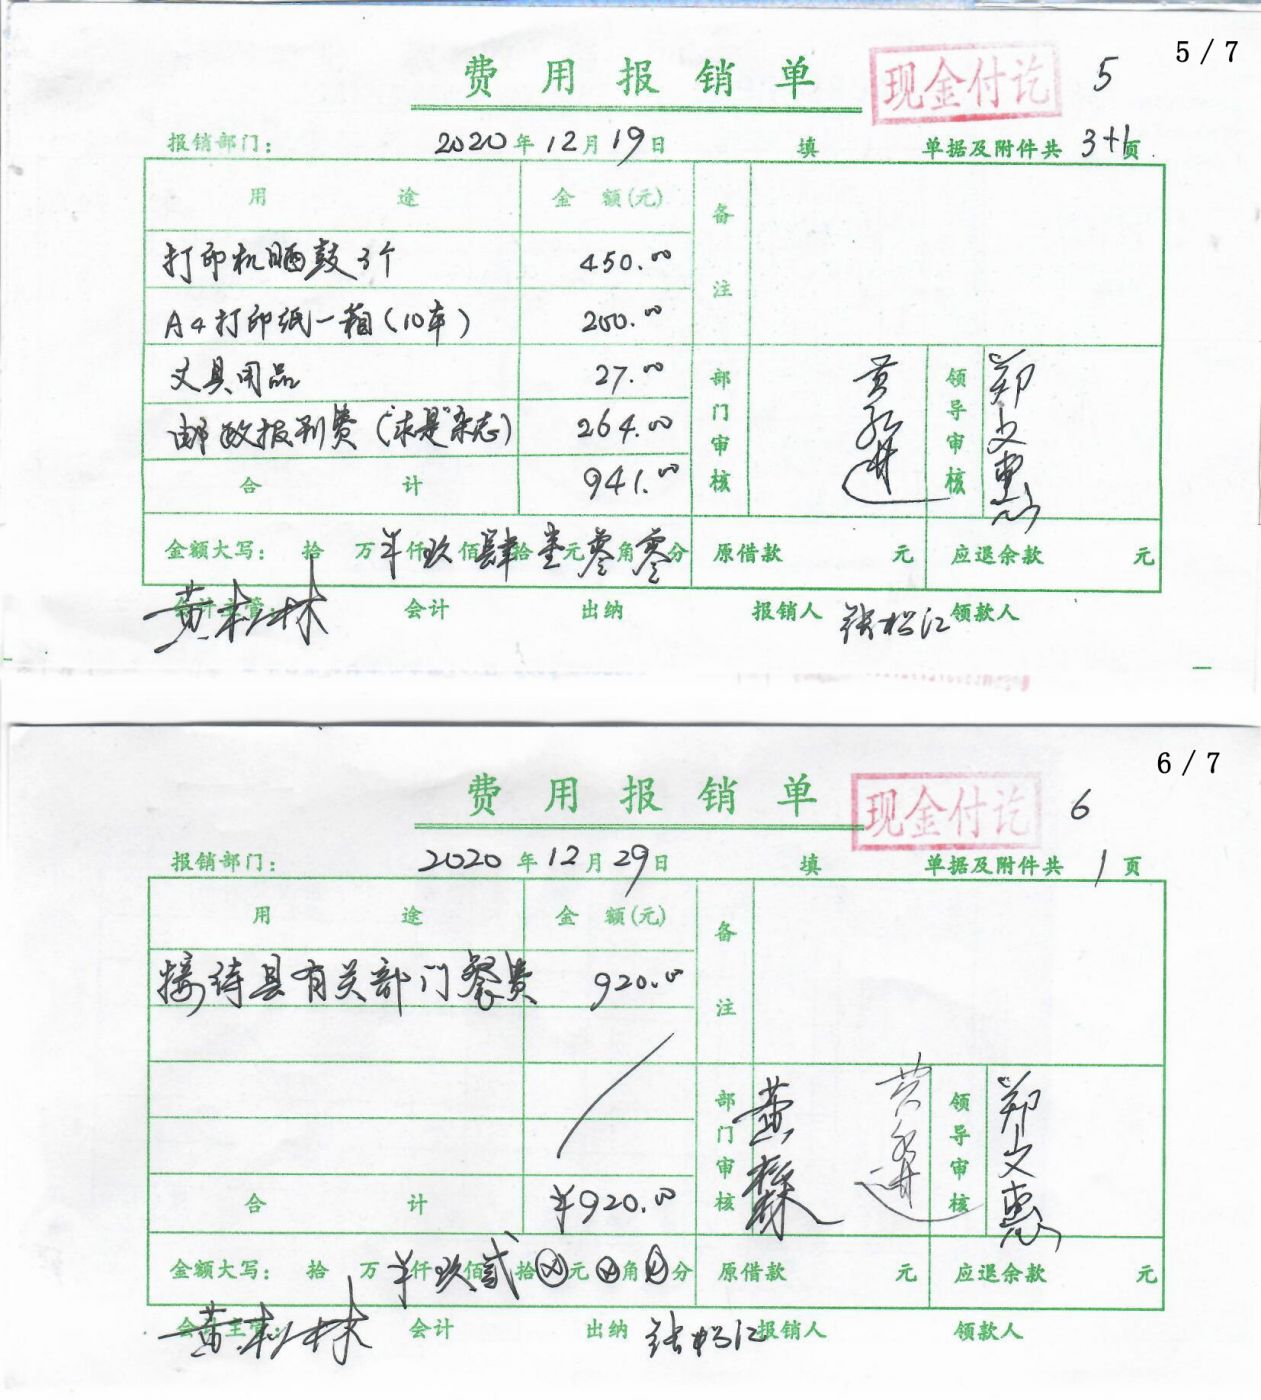 5 / 7
费用报销单 现金付讫 5
报销部门： 2020年12月19日 填 单据及附件共 3+1 页
用途 金额(元) 备注
打印机晒鼓3个 450.00
A4打印纸一箱(10本) 200.00
文具用品 27.00
邮政报刊费("求是"杂志) 264.00
合计 941.00
部门审核 领导审核 郑文惠
金额大写： 拾 万¥仟玖佰肆拾壹元零角零分 原借款 元 应退余款 元
会计主管： 黄松林 会计 出纳 报销人 张松江 领款人
6 / 7
费用报销单 现金付讫 6
报销部门： 2020年12月29日 填 单据及附件共 1 页
用途 金额(元) 备注
接待县有关部门餐费 920.00
合计 ¥920.00
部门审核 领导审核 郑文惠
金额大写： 拾 万¥仟玖佰贰拾ⓧ元ⓧ角ⓧ分 原借款 元 应退余款 元
会计主管： 黄松林 会计 出纳 张松江 报销人 领款人